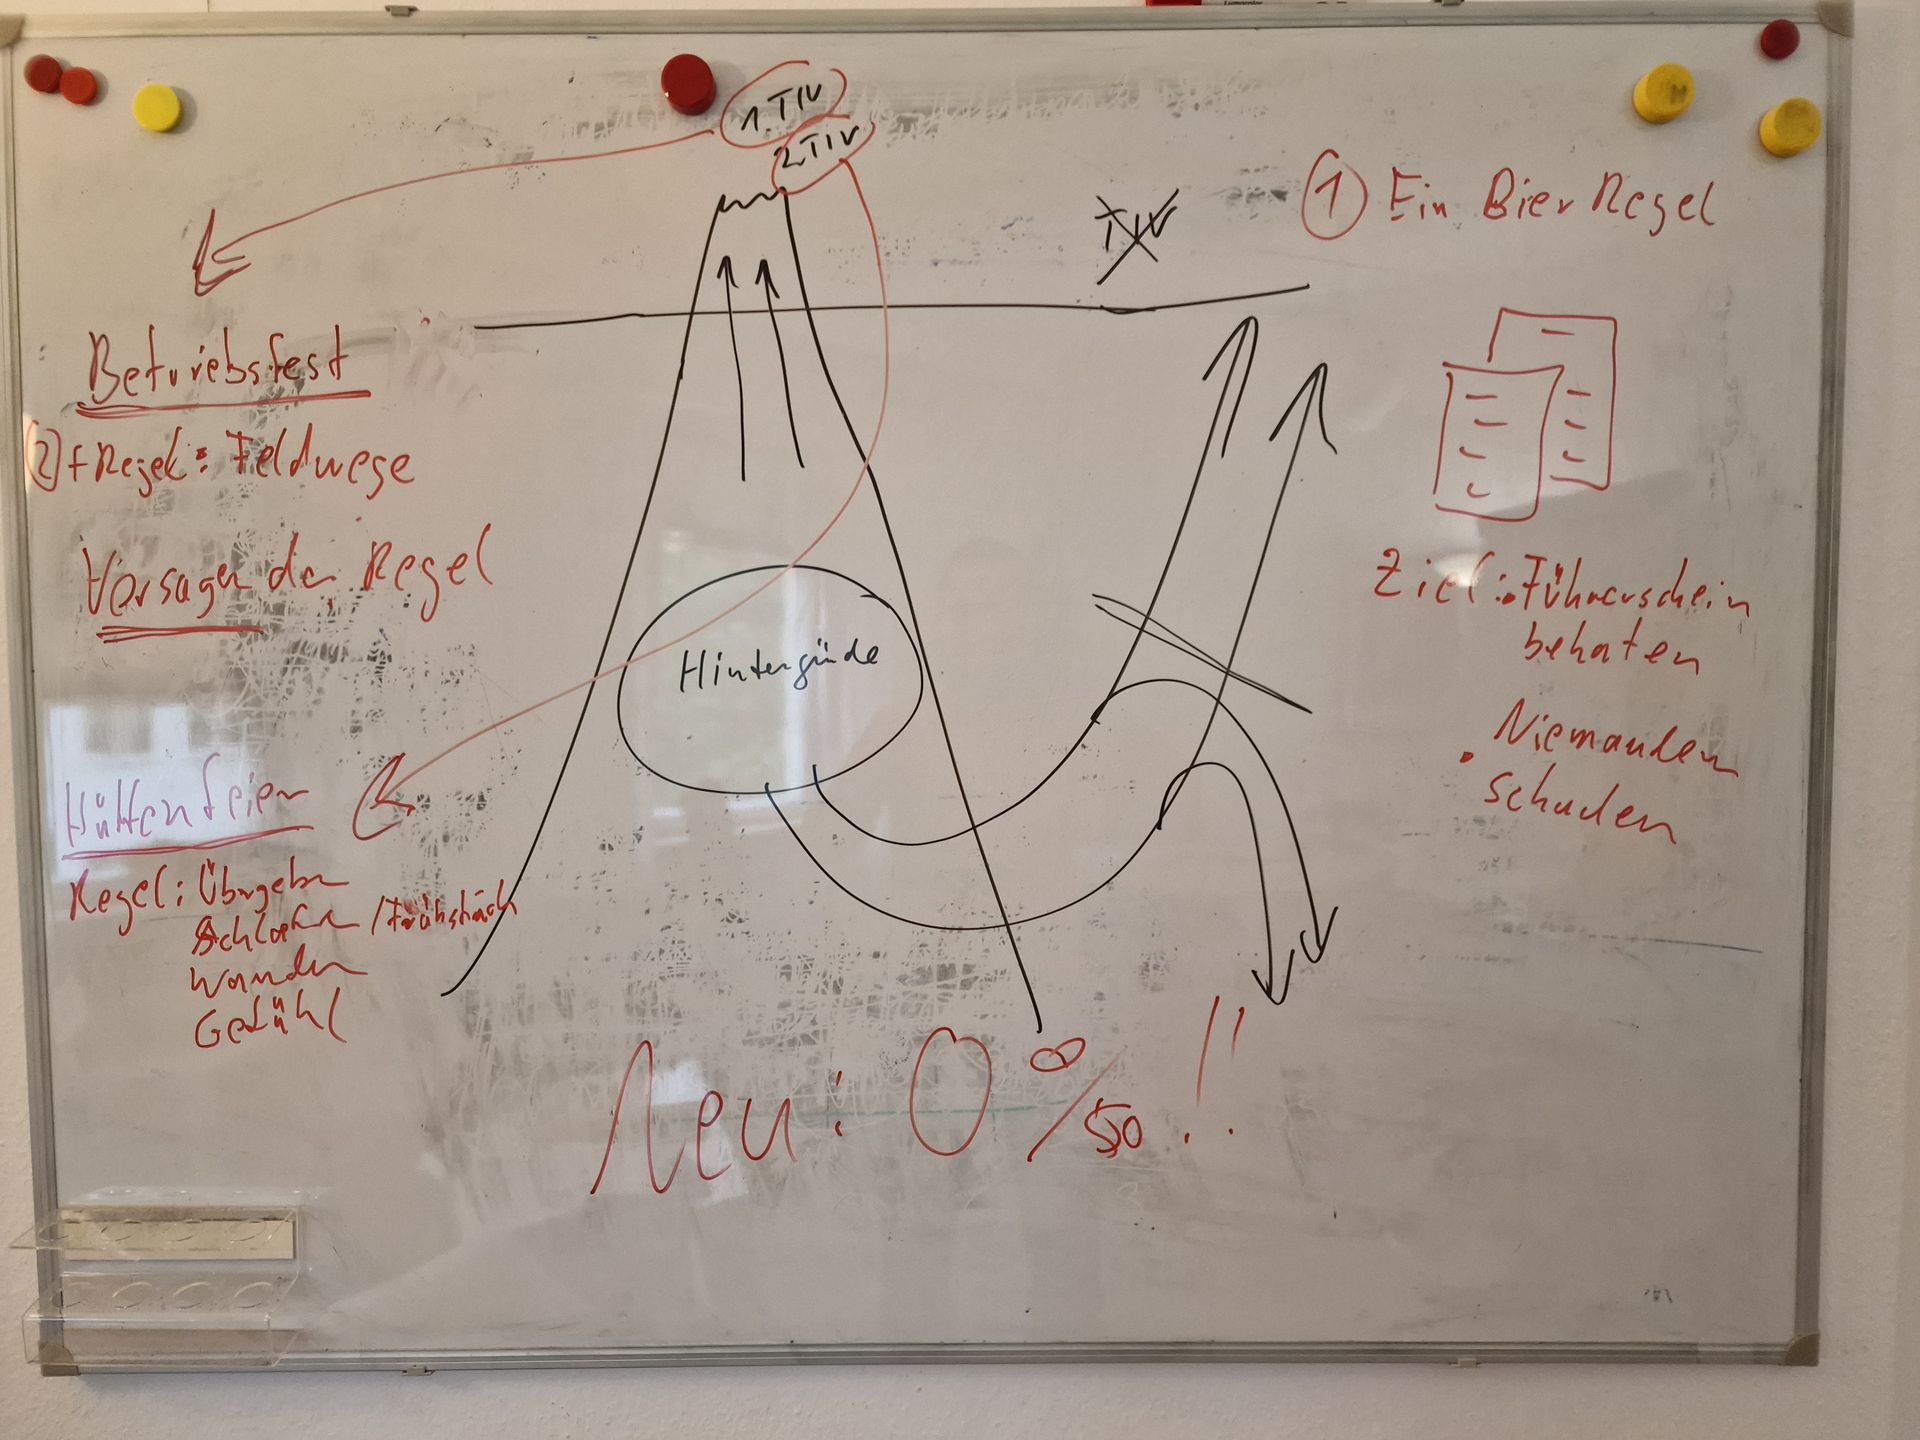 1. TIV
2 TIV
TIV
1 Ein Bier Regel
Betriebsfest
2 + Regel: Feldwege
Versagen der Regel
Hintergünde
Ziel: Führerschein
behaten
• Niemanden
schaden
Hüttenfeier
Regel: Übrgeben
Schlafen / Frühstück
Wandern
Gefühl
Neu: 0 ‰ !!